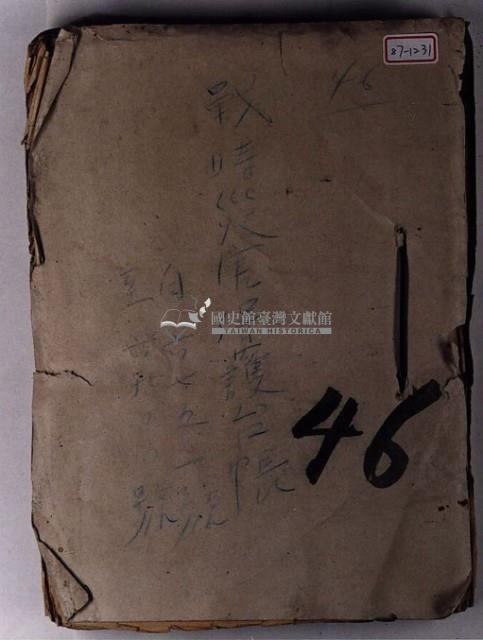 87-1231
46
戰時災害保護台帳
自
至
號
號
國史館臺灣文獻館
TAIWAN HISTORICA
46